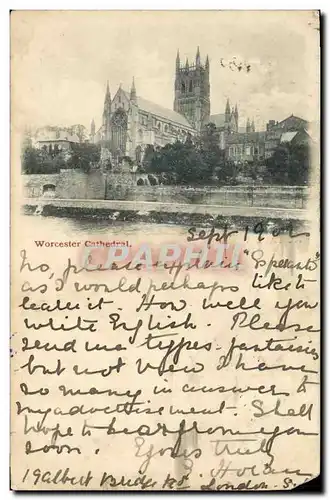 Worcester Cathedral.
Sept 190
No, please explain "Esperanto"
as I would perhaps like to
learn it How well you
write English. Please
send me types, fantaisies
but not view I have
so many in answer to
my advertisement. Shall
hope to hear from you
soon. Yours truly
E.
19 Albert Bridge Rd. London. S.
CPA PHOTOS